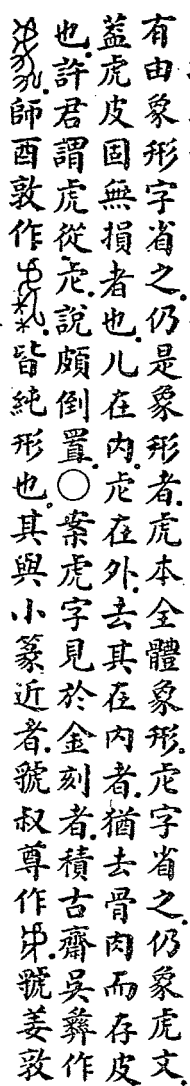 有由象形字省之仍是象形者虎本全體象形虍字省之仍象虎文
葢虎皮固無損者也儿在内虍在外去其在内者猶去骨肉而存皮
也許君謂虎從虍說頗倒置○案虎字見於金刻者積古齋吳彝作
師酉敦作皆純形也其與小篆近者虢叔尊作虢姜敦